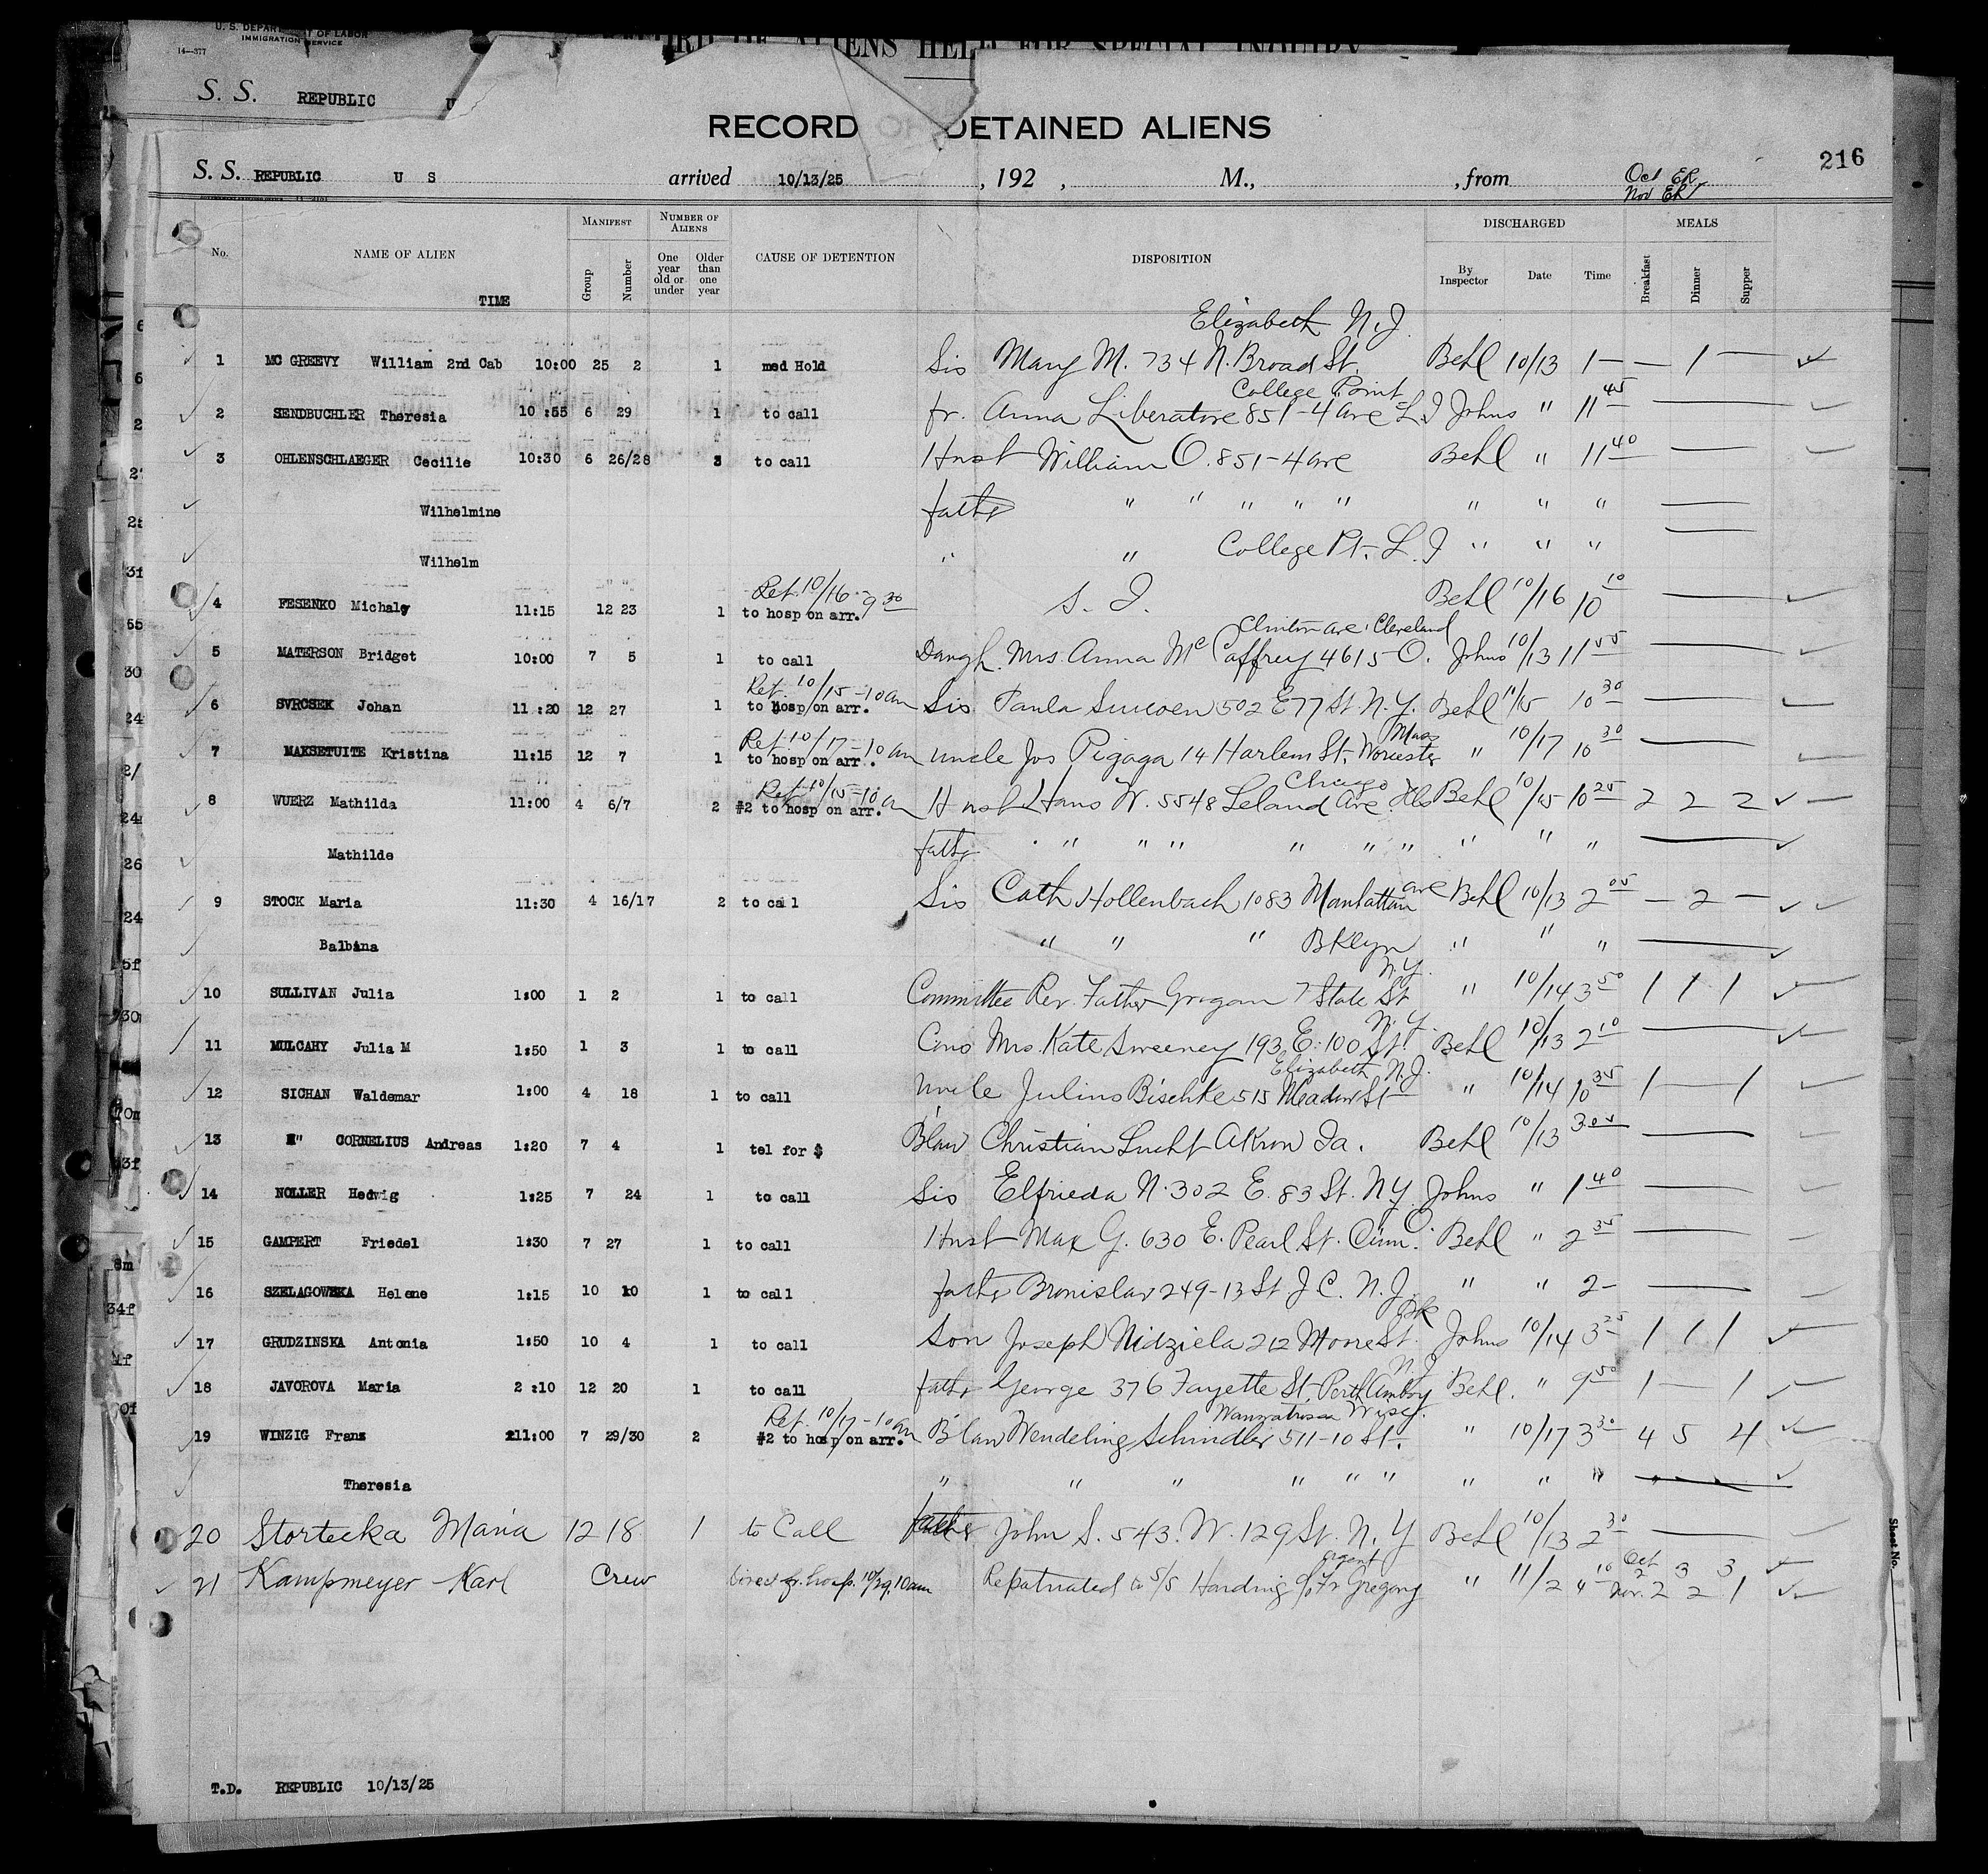 U. S. DEPARTMENT OF LABOR
IMMIGRATION SERVICE
14—377
RECORD OF ALIENS HELD FOR SPECIAL INQUIRY
S. S. REPUBLIC U
RECORD OF DETAINED ALIENS
216
S. S. REPUBLIC U S arrived 10/13/25 , 192 , M., , from Oct ER
Nov ER
No. NAME OF ALIEN TIME MANIFEST Group Number NUMBER OF ALIENS One year old or under Older than one year CAUSE OF DETENTION DISPOSITION DISCHARGED By Inspector Date Time MEALS Breakfast Dinner Supper
Elizabeth N.J.
1 MC GREEVY William 2nd Cab 10:00 25 2 1 med Hold Sis Mary M. 734 N. Broad St. Behl 10/13 1— — 1 —
College Point
2 SENDBUCHLER Theresia 10:55 6 29 1 to call fr. Anna Liberatore 851-4 ave L I Johns " 11 45 —
3 OHLENSCHLAEGER Cecilie 10:30 6 26/28 3 to call Husb William O. 851-4 ave Behl " 11 40 —
Wilhelmine father " " " " " " " " —
Wilhelm " " College Pt. L. I " " " —
Ret. 10/16 - 9 30
4 FESENKO Michaly 11:15 12 23 1 to hosp on arr. S. I. Behl 10/16 10 10 —
Clinton ave. Cleveland
5 MATERSON Bridget 10:00 7 5 1 to call Daugh. Mrs. Anna McCaffrey 4615 O. Johns 10/13 11 55 —
Ret. 10/15 - 10 am
6 SVRCSEK Johan 11:20 12 27 1 to hosp on arr. Sis Paula 502 E 77 St N.Y. Behl 11/15 10 30 —
Ret. 10/17 - 10 am Mass
7 MAKSETUITE Kristina 11:15 12 7 1 to hosp on arr. uncle Jos Pigaga 14 Harlem St. Worcester " 10/17 10 30 —
Ret 10/15 - 10 am Chicago
8 WUERZ Mathilda 11:00 4 6/7 2 #2 to hosp on arr. Husb Hans W. 5548 Leland Ave. Ills Behl 10/15 10 25 2 2 2
Mathilde father " " " " " " " " " —
9 STOCK Maria 11:30 4 16/17 2 to call Sis Cath Hollenbach 1083 Manhattan ave Behl 10/13 2 05 — 2 —
Balbina " " " Bklyn " " " —
N.Y.
10 SULLIVAN Julia 1:00 1 2 1 to call Committee Rev. Father Grogan 7 State St " 10/14 3 50 1 1 1
N.Y.
11 MULCAHY Julia M 1:50 1 3 1 to call Cous Mrs. Kate Sweeney 193 E. 100 St. Behl 10/13 2 10 —
Elizabeth N.J.
12 SICHAN Waldemar 1:00 4 18 1 to call Uncle Julius Bischke 515 Meadow St " 10/14 10 35 1 — 1
13 " CORNELIUS Andreas 1:20 7 4 1 tel for $ B'law Christian Lucht Akron Ia. Behl 10/13 3 05 —
14 NOLLER Hedwig 1:25 7 24 1 to call Sis Elfrieda N. 302 E. 83 St. N Y Johns " 1 40 —
15 GAMPERT Friedel 1:30 7 27 1 to call Husb Max G. 630 E. Pearl St. Cinn. O. Behl " 2 35 —
16 SZELAGOWSKA Helene 1:15 10 10 1 to call father Bronislav 249-13 St. J C. N.J. " " 2— —
Bk
17 GRUDZINSKA Antonia 1:50 10 4 1 to call Son Joseph Nidziela 212 Moore St. Johns 10/14 3 25 1 1 1
N.J.
18 JAVOROVA Maria 2:10 12 20 1 to call father George 376 Fayette St. Perth Amboy Behl. " 9 50 1 — 1
Ret. 10/17 - 10 am Wisc.
19 WINZIG Franz 11:00 7 29/30 2 #2 to hosp on arr. B'law Wendeling Schindler 511-10 St. " 10/17 3 30 4 5 4
Theresia " " " " " " " " " —
20 Stortecka Maria 12 18 1 to Call father John S. 543. W. 129 St. N. Y Behl 10/13 2 30 —
urgent Oct 2 3 3
21 Kampmeyer Karl Crew Direct fr. hosp. 10/29, 10 am Repatriated to S/S Harding c/o Fr Gregory " 11/2 4 10 Nov. 2 2 1
T.D. REPUBLIC 10/13/25
Sheet No.